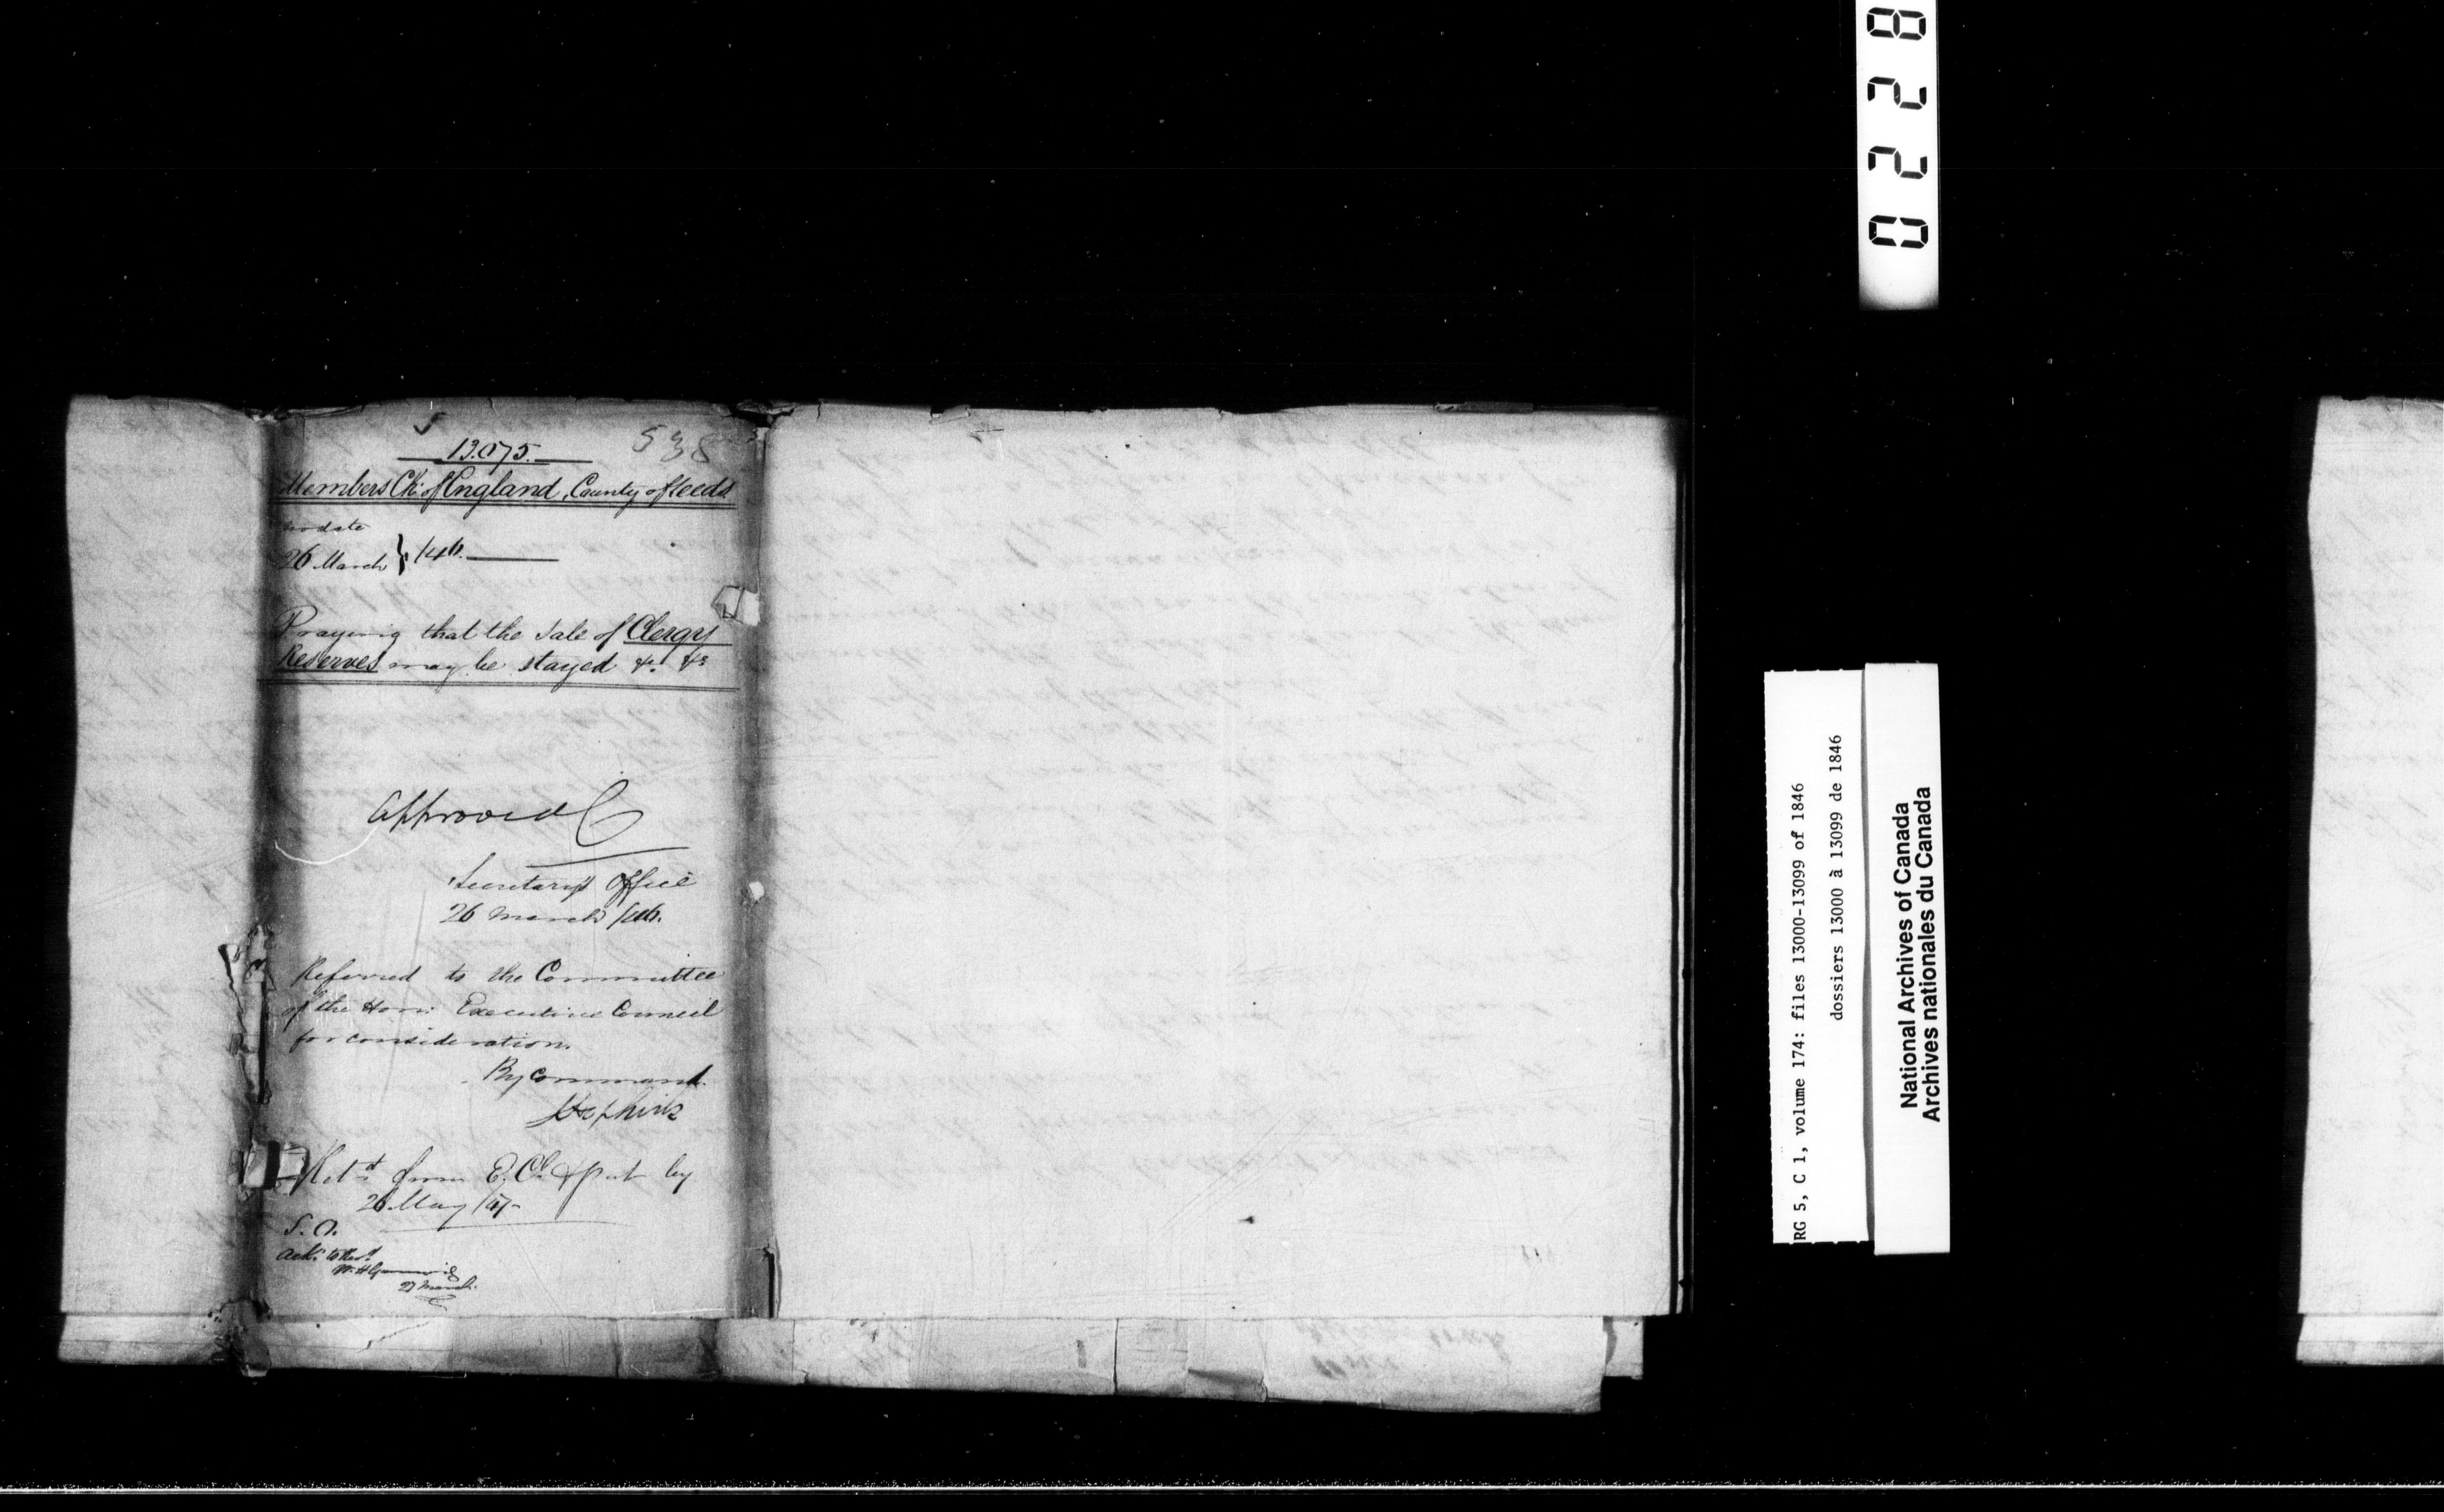 13.075.
538
Members Ch: of England, County of Leeds
no date
26 March } /46.
Praying that the Sale of Clergy
Reserves may be stayed &c. &c
Approved C
Secretary's Office
26 March /46.
Referred to the Committee
of the Hon: Executive Council
for consideration.
By Command.
Hopkirk
Ret.d from E. Cl. & put by
26 May /47-
S. O.
Ack.d to Rev.d
W. H.
27 March.
0228
RG 5, C 1, volume 174: files 13000-13099 of 1846
dossiers 13000 à 13099 de 1846
National Archives of Canada
Archives nationales du Canada